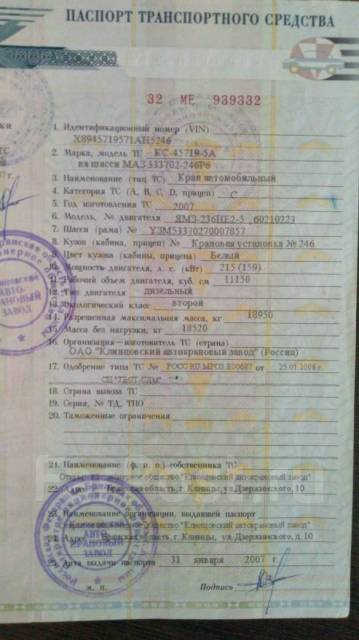 ПАСПОРТ ТРАНСПОРТНОГО СРЕДСТВА
32 МЕ 939332
1. Идентификационный номер (VIN)
X8945719571AH5246
2. Марка, модель ТС КС-45719-5А
на шасси МАЗ-533702-246Р6
3. Наименование (тип ТС) Кран автомобильный
4. Категория ТС (А, В, С, D, прицеп) С
5. Год изготовления ТС 2007
6. Модель, № двигателя ЯМЗ-236НЕ2-5 60210223
7. Шасси (рама) № Y3M53370270007857
8. Кузов (кабина, прицеп) № Крановая установка № 246
9. Цвет кузова (кабины, прицепа) Белый
10. Мощность двигателя, л. с. (кВт) 215 (159)
11. Рабочий объем двигателя, куб. см 11150
12. Тип двигателя дизельный
13. Экологический класс второй
14. Разрешенная максимальная масса, кг 18950
15. Масса без нагрузки, кг 18520
16. Организация-изготовитель ТС (страна)
ОАО "Клинцовский автокрановый завод" (Россия)
17. Одобрение типа ТС № от
18. Страна вывоза ТС
19. Серия, № ТД, ТПО
20. Таможенные ограничения
21. Наименование (ф. и. о.) собственника ТС
общество "Клинцовский автокрановый завод"
область, г. Клинцы, ул. Дзержинского, 10
23. Наименование организации, выдавшей паспорт
общество "Клинцовский автокрановый завод"
24. Адрес область, г. Клинцы, ул. Дзержинского, д. 10
25. Дата выдачи паспорта 31 января 2007 г.
м. п. Подпись
АВТО-
КРАНОВЫЙ
ЗАВОД